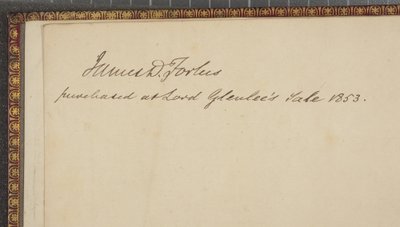 James D. Forbes
purchased at Lord Glenlee's Sale 1853.